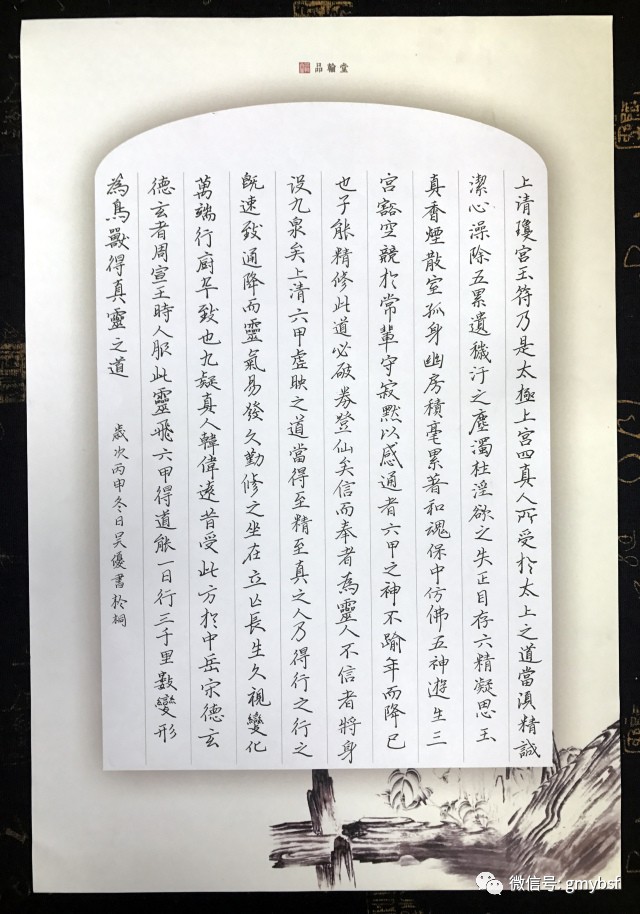 品翰堂
上清瓊宮玉符乃是太極上宮四真人所受於太上之道當須精誠
潔心澡除五累遺穢汙之塵濁杜淫欲之失正目存六精凝思玉
真香煙散室孤身幽房積毫累著和魂保中仿佛五神遊生三
宮豁空競於常輩守寂默以感通者六甲之神不踰年而降已
也子能精修此道必破券登仙矣信而奉者為靈人不信者將身
没九泉矣上清六甲虛映之道當得至精至真之人乃得行之行之
既速致通降而靈氣易發久勤修之坐在立亡長生久視變化
萬端行廚卒致也九疑真人韓偉遠昔受此方於中岳宋德玄
德玄者周宣王時人服此靈飛六甲得道能一日行三千里數變形
為鳥獸得真靈之道
歲次丙申冬日吴優書於桐
微信号: gmybsf